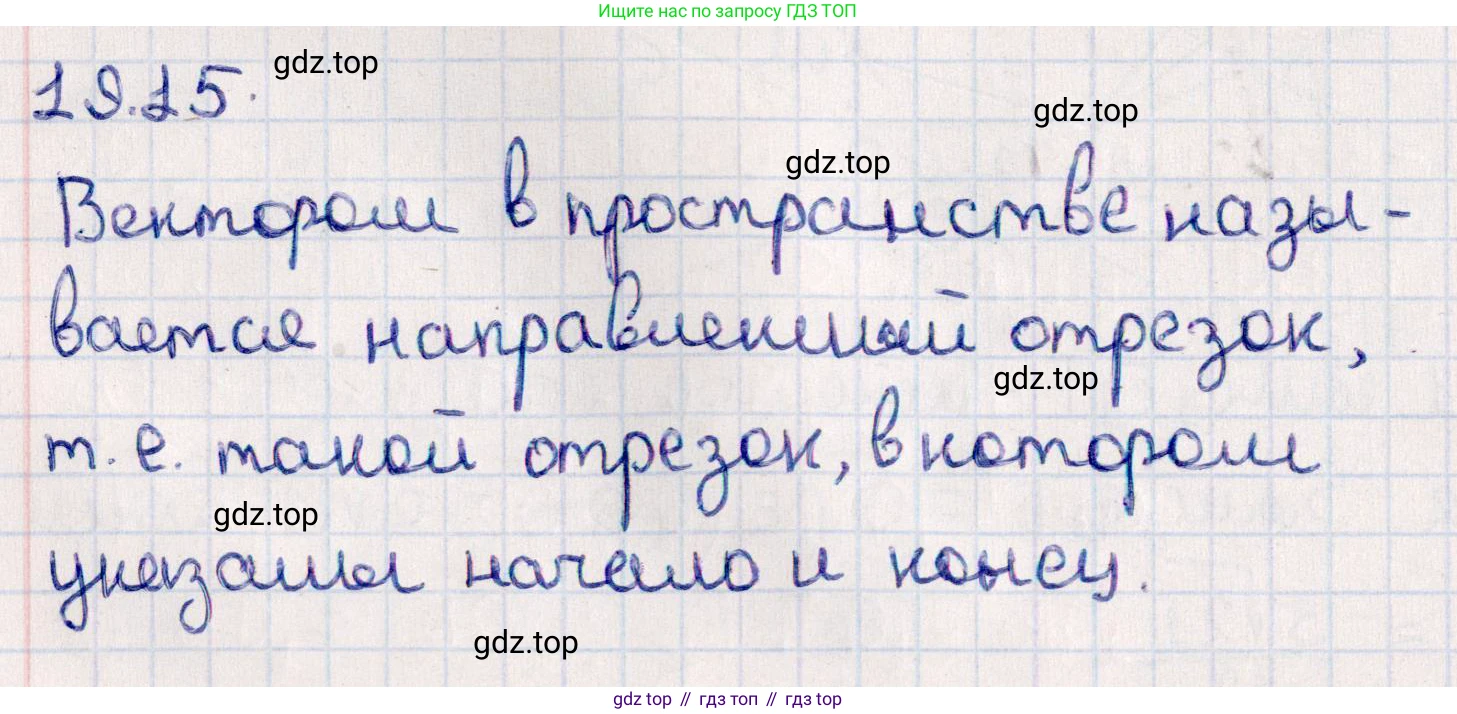 Ищите нас по запросу ГДЗ ТОП
19.15.
gdz.top
gdz.top
gdz.top
Вектором в пространстве назы-
вается направленный отрезок,
gdz.top
т.е. такой отрезок, в котором
gdz.top
указаны начало и конец.
gdz.top
gdz top // гдз топ // gdz top